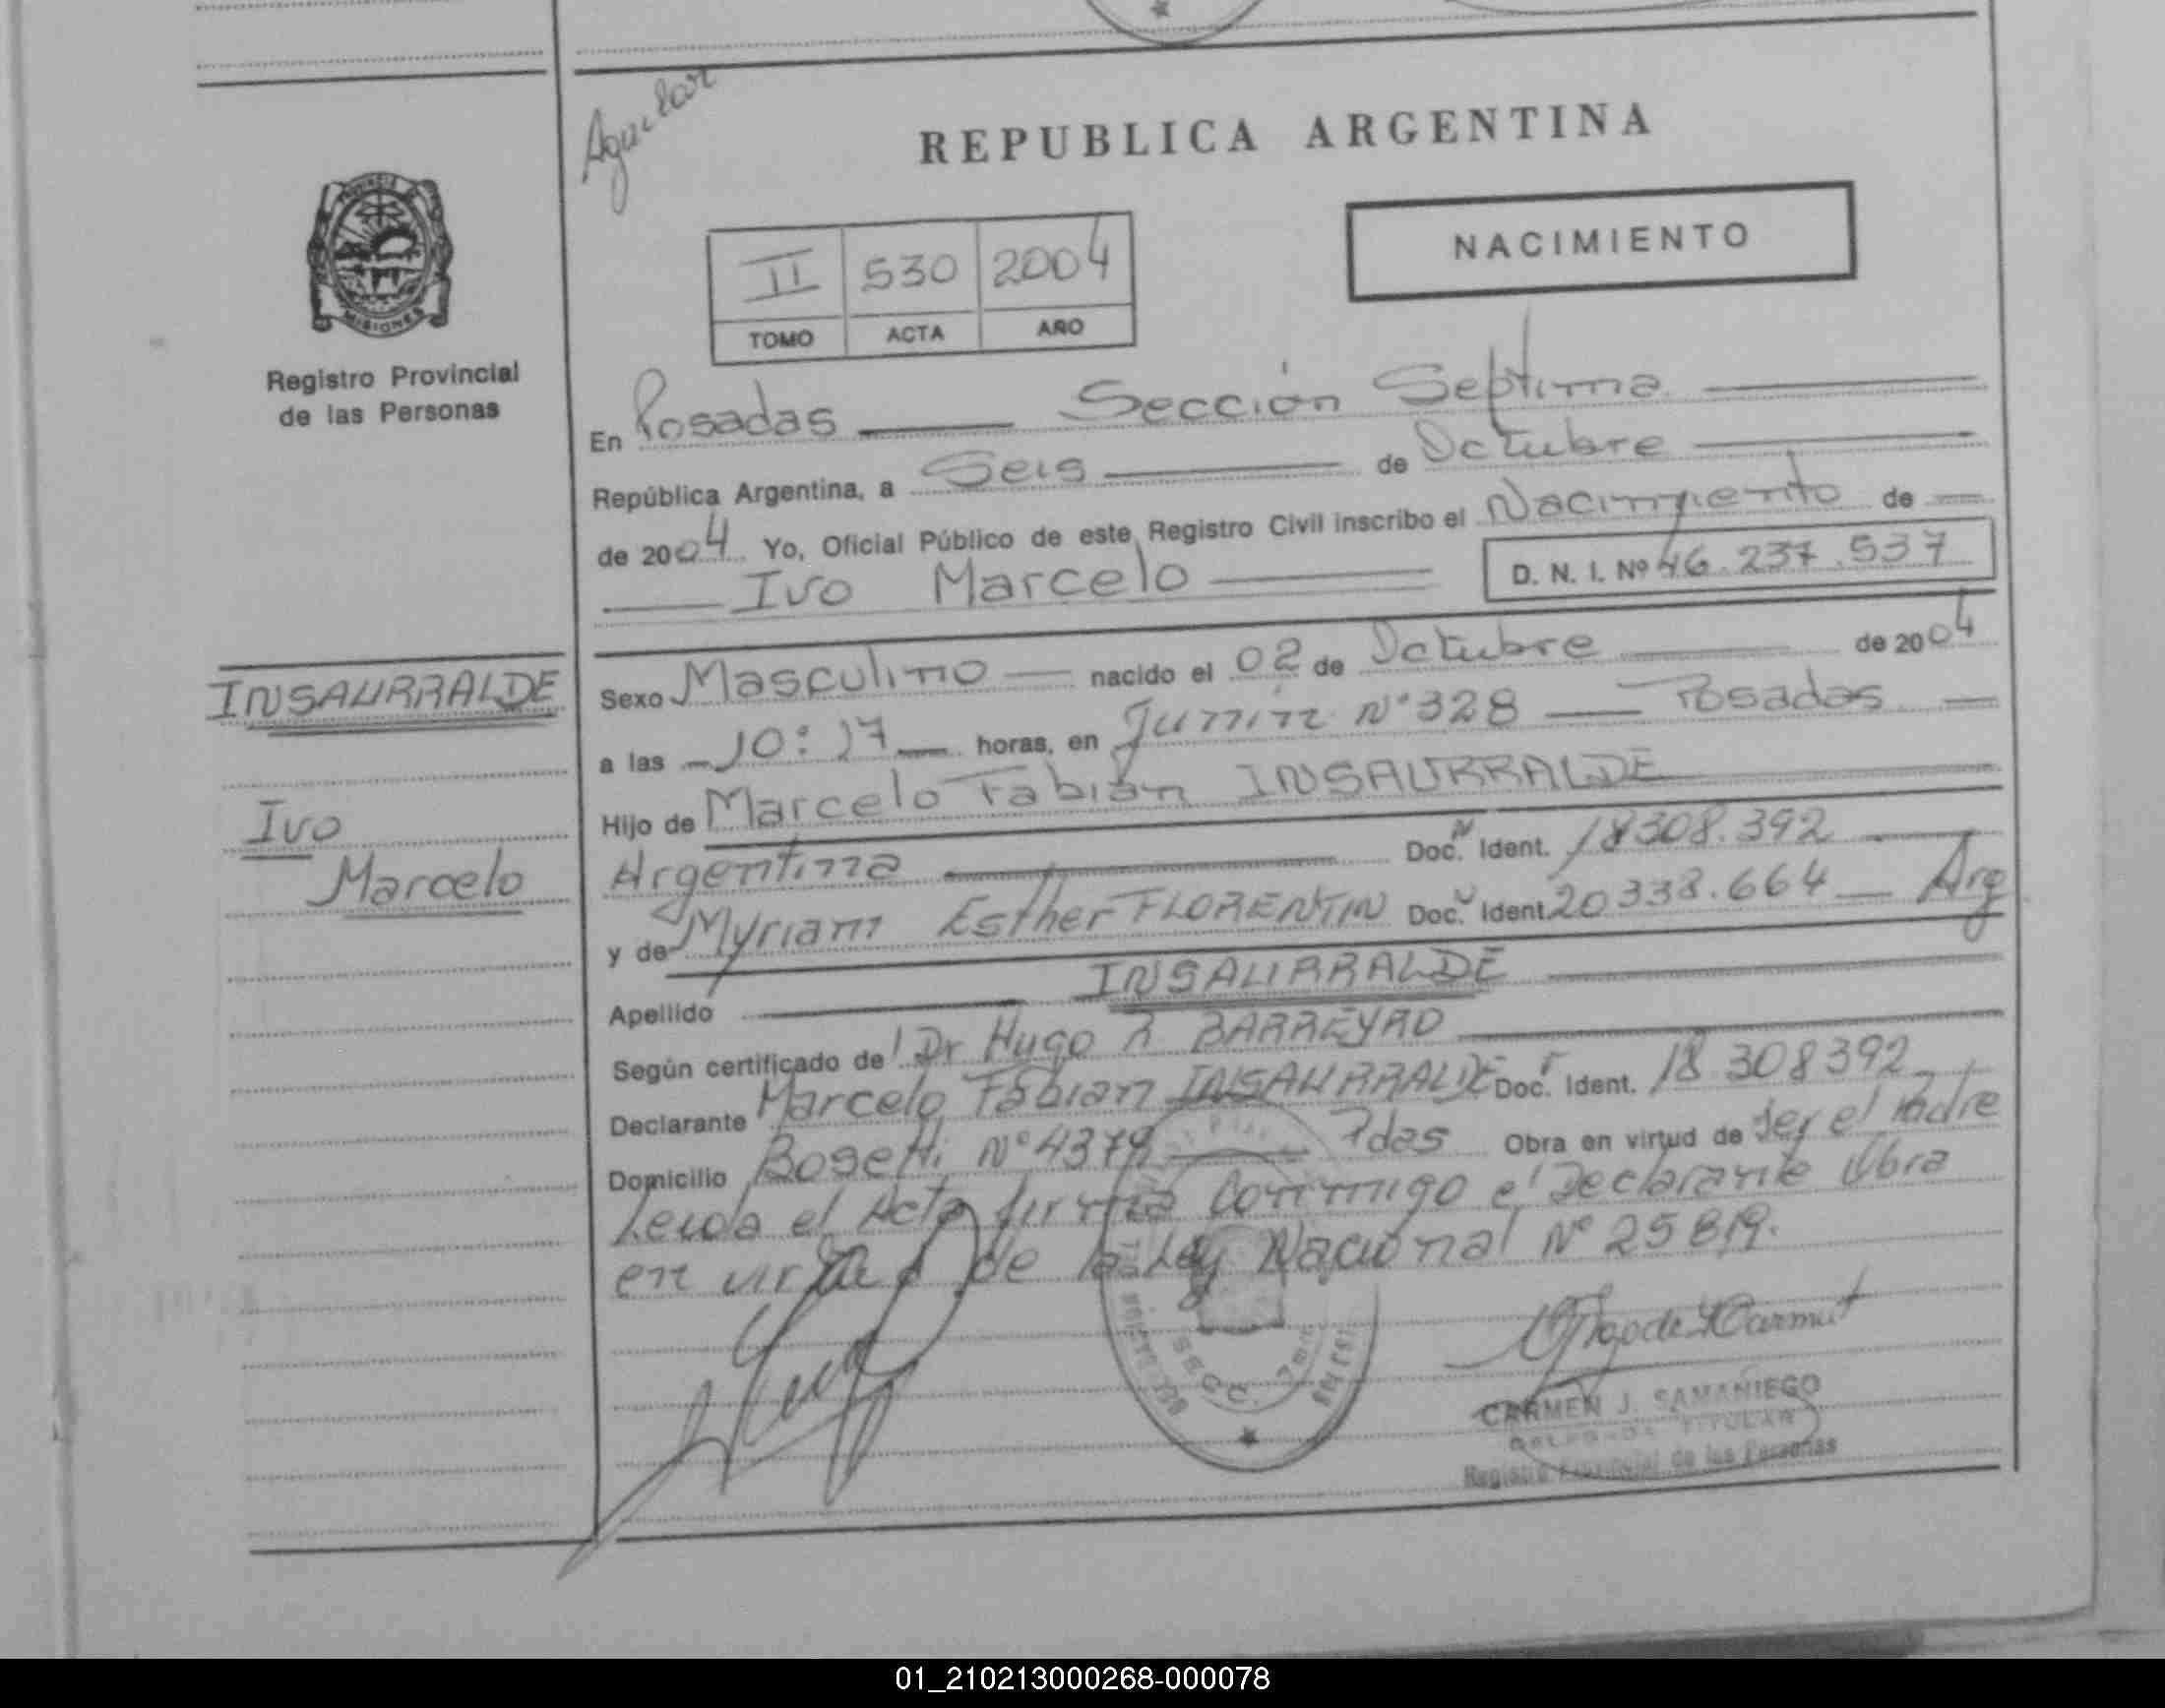 Aguilar
REPUBLICA ARGENTINA
PROVINCIA DE
MISIONES
Registro Provincial
de las Personas
NACIMIENTO
II 530 2004
TOMO ACTA AÑO
En Posadas Sección Septima
República Argentina, a Seis de Octubre
de 2004 Yo, Oficial Público de este Registro Civil inscribo el Nacimiento de
Ivo Marcelo D. N. I. Nº 46.237.537
INSAURRALDE
Ivo
Marcelo
Sexo Masculino nacido el 02 de Octubre de 2004
a las 10:17 horas, en Junín Nº 328 Posadas
Hijo de Marcelo Fabián INSAURRALDE
Argentina Doc. Ident. 18308.392
y de Myriam Esther FLORENTIN Doc. Ident 20338.664 Arg
Apellido INSAURRALDE
Según certificado de Dr Hugo R BARREYRO
Declarante Marcelo Fabian INSAURRALDE Doc. Ident. 18 308392
Domicilio Bosetti Nº 4379 Pdas Obra en virtud de ser el Padre
Leida el Acta firma Conmigo el Declarante Obra
en virtud de la Ley Nacional Nº 25819.
CARMEN J. SAMANIEGO
DELEGADA TITULAR
Registro Provincial de las Personas
01_210213000268-000078